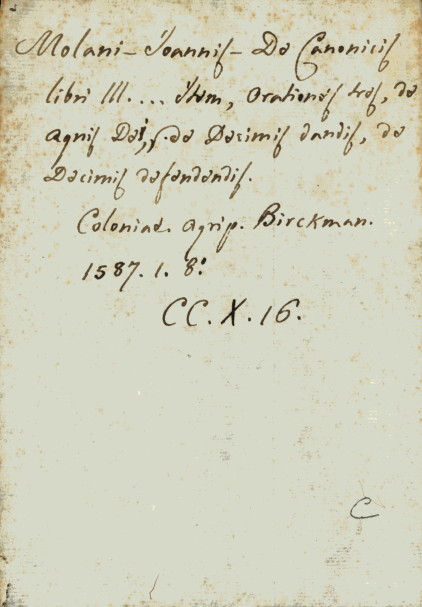 Molani - Joannis - De Canonicis
libri III.... Item, Orationes tres, de
Agnis Dei, de Decimis dandis, de
Decimis defendendis.
Coloniae. Agrip. Birckman.
1587. 1. 8:
CC. X. 16.
C